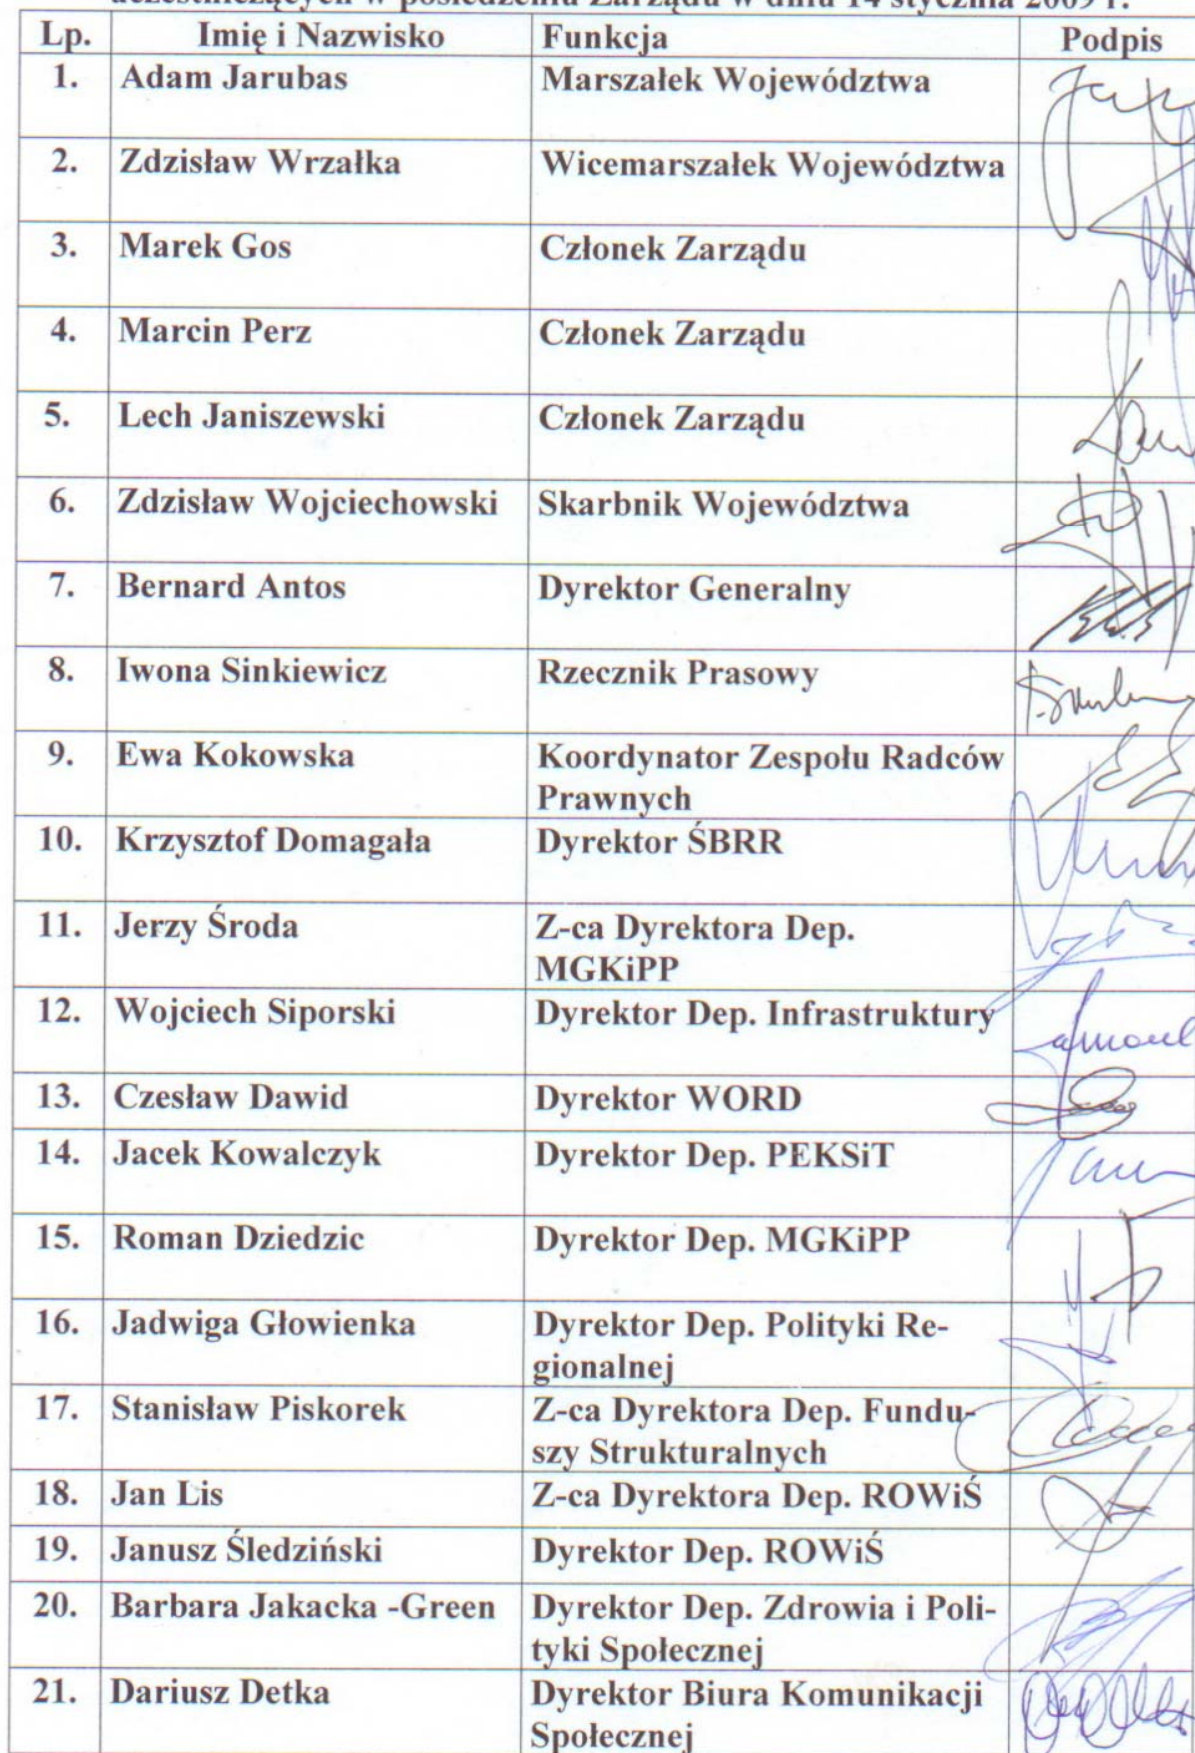 uczestniczących w posiedzeniu Zarządu w dniu 14 stycznia 2009 r.
Lp. Imię i Nazwisko Funkcja Podpis
1. Adam Jarubas Marszałek Województwa
2. Zdzisław Wrzałka Wicemarszałek Województwa
3. Marek Gos Członek Zarządu
4. Marcin Perz Członek Zarządu
5. Lech Janiszewski Członek Zarządu
6. Zdzisław Wojciechowski Skarbnik Województwa
7. Bernard Antos Dyrektor Generalny
8. Iwona Sinkiewicz Rzecznik Prasowy
9. Ewa Kokowska Koordynator Zespołu Radców
Prawnych
10. Krzysztof Domagała Dyrektor ŚBRR
11. Jerzy Środa Z-ca Dyrektora Dep.
MGKiPP
12. Wojciech Siporski Dyrektor Dep. Infrastruktury
13. Czesław Dawid Dyrektor WORD
14. Jacek Kowalczyk Dyrektor Dep. PEKSiT
15. Roman Dziedzic Dyrektor Dep. MGKiPP
16. Jadwiga Głowienka Dyrektor Dep. Polityki Re-
gionalnej
17. Stanisław Piskorek Z-ca Dyrektora Dep. Fundu-
szy Strukturalnych
18. Jan Lis Z-ca Dyrektora Dep. ROWiŚ
19. Janusz Śledziński Dyrektor Dep. ROWiŚ
20. Barbara Jakacka -Green Dyrektor Dep. Zdrowia i Poli-
tyki Społecznej
21. Dariusz Detka Dyrektor Biura Komunikacji
Społecznej